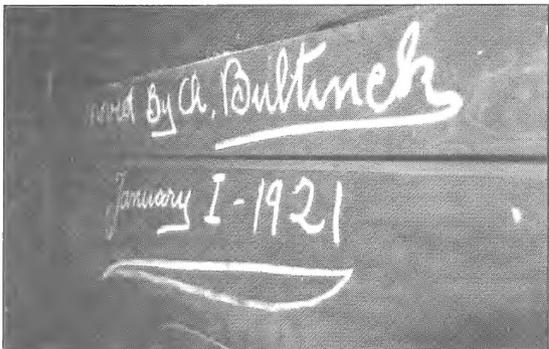 By Ch. Bultinck
January I - 1921